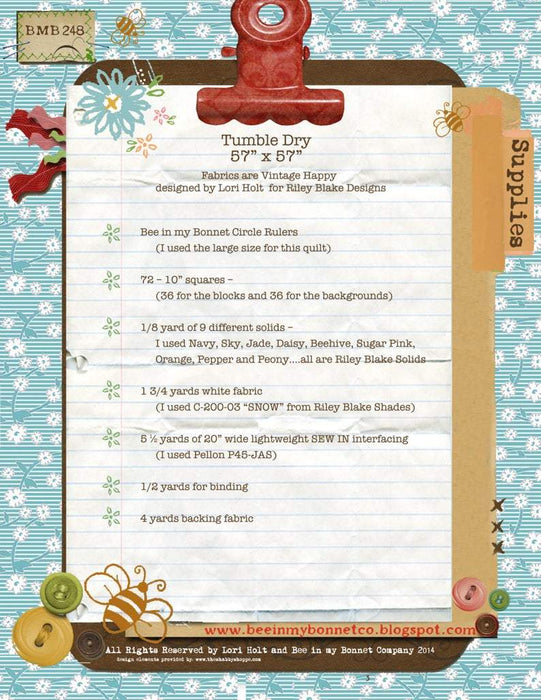 BMB 248
Tumble Dry
57” x 57”
Fabrics are Vintage Happy
designed by Lori Holt for Riley Blake Designs
Supplies
Bee in my Bonnet Circle Rulers
(I used the large size for this quilt)
72 – 10” squares –
(36 for the blocks and 36 for the backgrounds)
1/8 yard of 9 different solids –
I used Navy, Sky, Jade, Daisy, Beehive, Sugar Pink,
Orange, Pepper and Peony....all are Riley Blake Solids
1 3/4 yards white fabric
(I used C-200-03 “SNOW” from Riley Blake Shades)
5 ½ yards of 20” wide lightweight SEW IN interfacing
(I used Pellon P45-JAS)
1/2 yards for binding
4 yards backing fabric
www.beeinmybonnetco.blogspot.com
All Rights Reserved by Lori Holt and Bee in my Bonnet Company 2014
design elements provided by: www.theshabbyshoppe.com